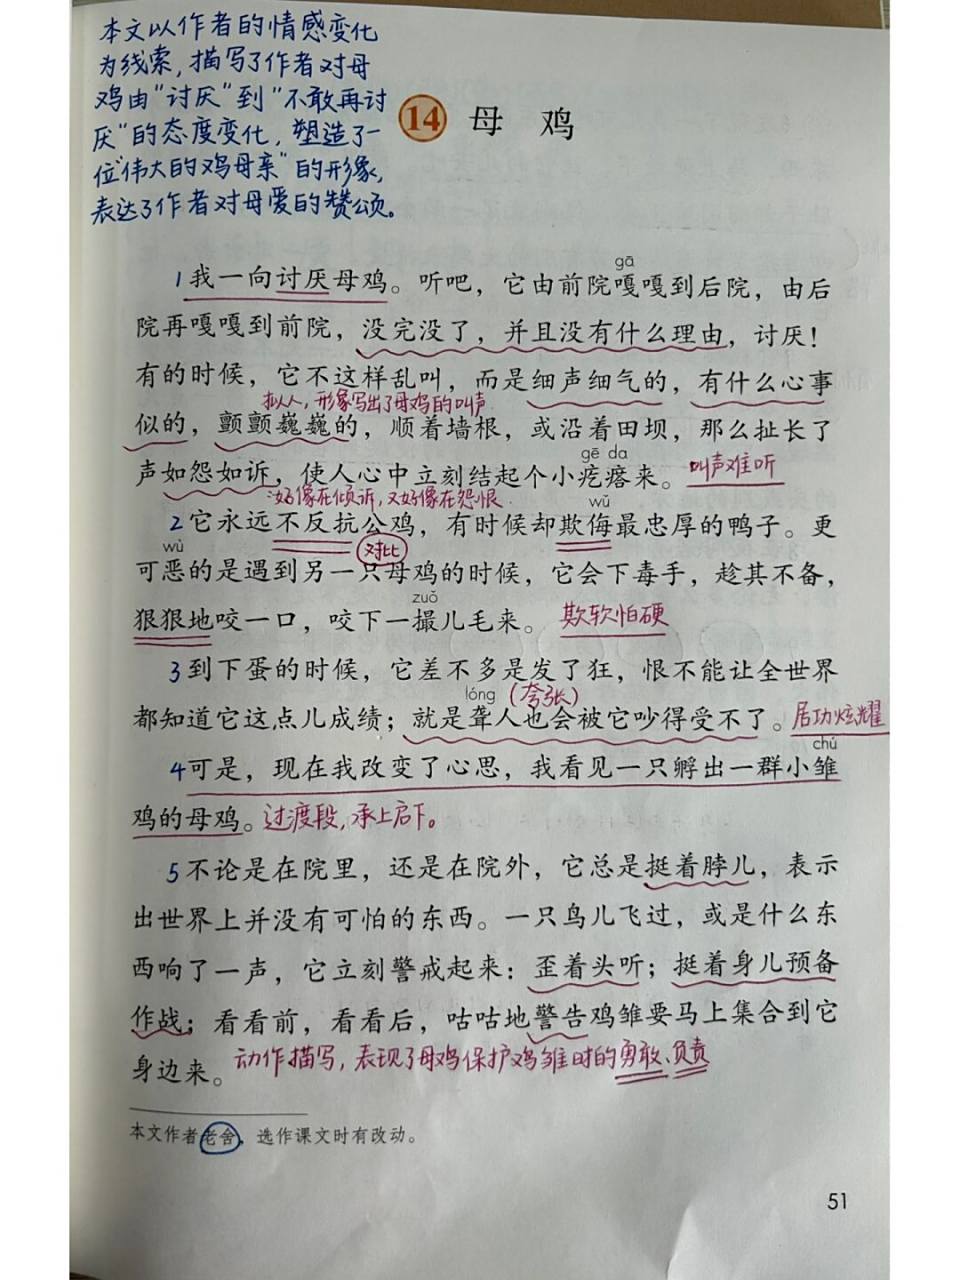 本文以作者的情感变化
为线索，描写了作者对母
鸡由“讨厌”到“不敢再讨
厌”的态度变化，塑造了一
位“伟大的鸡母亲”的形象，
表达了作者对母爱的赞颂。
14 母 鸡
gā
1我一向讨厌母鸡。听吧，它由前院嘎嘎到后院，由后
院再嘎嘎到前院，没完没了，并且没有什么理由，讨厌！
有的时候，它不这样乱叫，而是细声细气的，有什么心事
拟人，形象写出了母鸡的叫声
似的，颤颤巍巍的，顺着墙根，或沿着田坝，那么扯长了
gē da
声如怨如诉，使人心中立刻结起个小疙瘩来。 叫声难听
好像在倾诉，又好像在怨恨
wǔ
2它永远不反抗公鸡，有时候却欺侮最忠厚的鸭子。更
wù 对比
可恶的是遇到另一只母鸡的时候，它会下毒手，趁其不备，
zuǒ
狠狠地咬一口，咬下一撮儿毛来。 欺软怕硬
3到下蛋的时候，它差不多是发了狂，恨不能让全世界
lóng（夸张）
都知道它这点儿成绩；就是聋人也会被它吵得受不了。居功炫耀
chú
4可是，现在我改变了心思，我看见一只孵出一群小雏
鸡的母鸡。过渡段，承上启下。
5不论是在院里，还是在院外，它总是挺着脖儿，表示
出世界上并没有可怕的东西。一只鸟儿飞过，或是什么东
西响了一声，它立刻警戒起来：歪着头听；挺着身儿预备
作战；看看前，看看后，咕咕地警告鸡雏要马上集合到它
身边来。动作描写，表现了母鸡保护鸡雏时的勇敢、负责
本文作者老舍，选作课文时有改动。
51